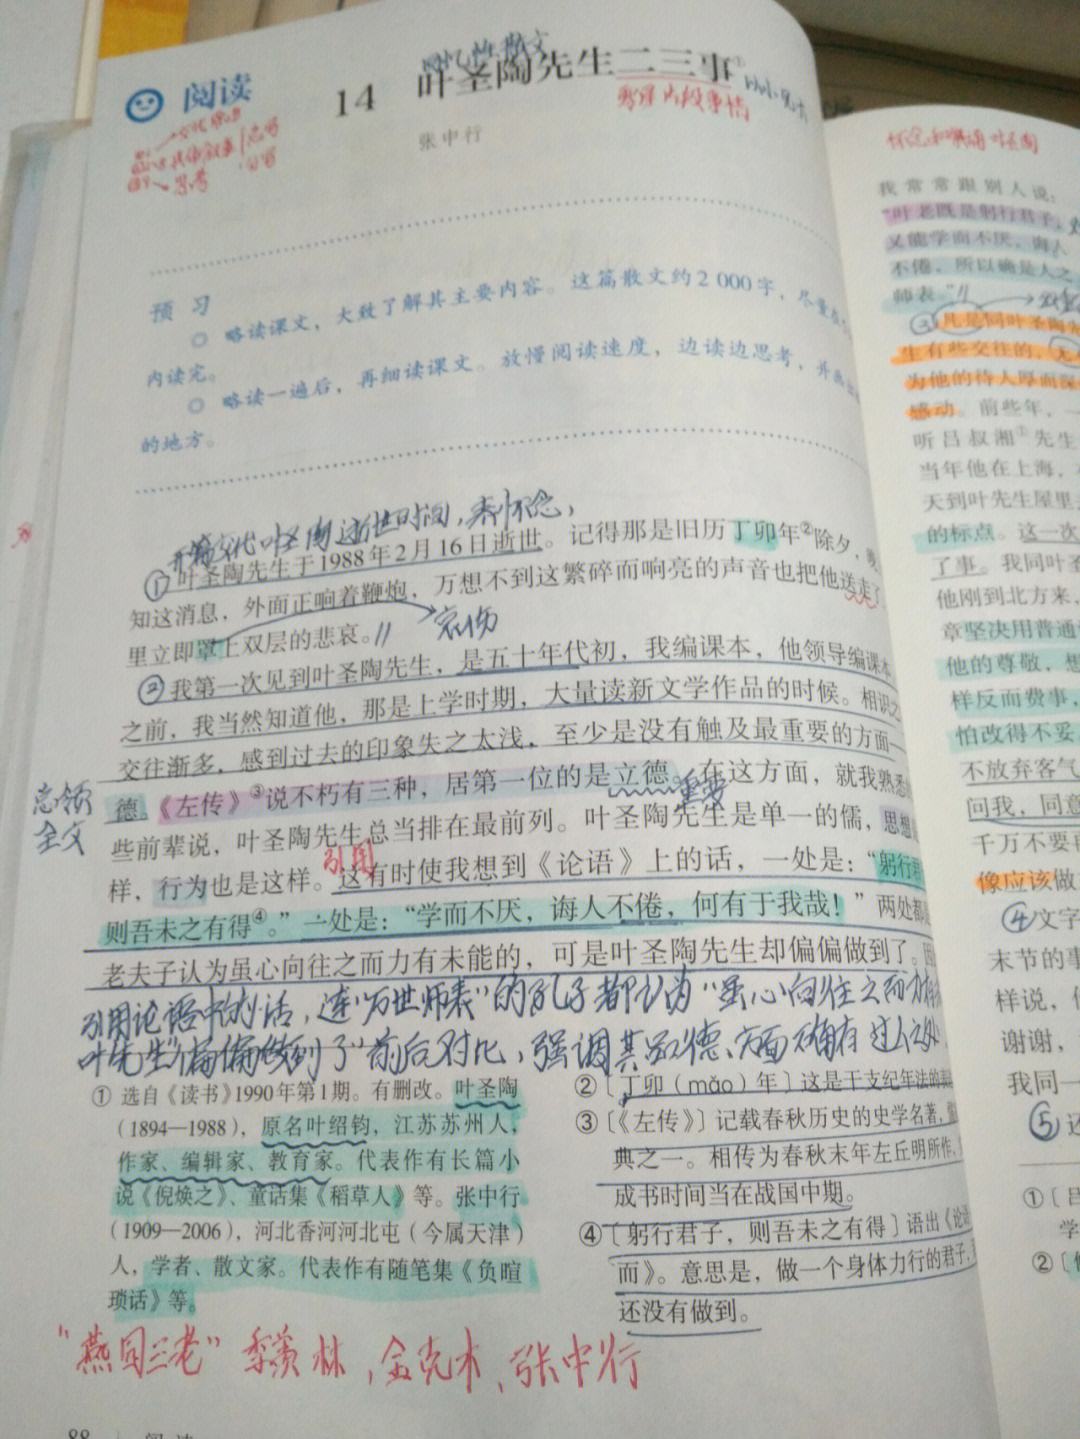 阅读
14 叶圣陶先生二三事①
回忆性散文
张中行
预习
○ 略读课文，大致了解其主要内容。这篇散文约2 000字，尽量
内读完。
○ 略读一遍后，再细读课文。放慢阅读速度，边读边思考，并
的地方。
开篇交代叶圣陶逝世时间，表怀念，
①叶圣陶先生于1988年2月16日逝世。记得那是旧历丁卯年②除夕，晚
知这消息，外面正响着鞭炮，万想不到这繁碎而响亮的声音也把他送走了
里立即罩上双层的悲哀。
哀伤
②我第一次见到叶圣陶先生，是五十年代初，我编课本，他领导编课本
之前，我当然知道他，那是上学时期，大量读新文学作品的时候。相识之
交往渐多，感到过去的印象失之太浅，至少是没有触及最重要的方面—
德。《左传》③说不朽有三种，居第一位的是立德。在这方面，就我熟悉
重要
总领
全文
些前辈说，叶圣陶先生总当排在最前列。叶圣陶先生是单一的儒，思想
样，行为也是这样。这有时使我想到《论语》上的话，一处是：“躬行君
引用
则吾未之有得④。”一处是：“学而不厌，诲人不倦，何有于我哉！”两处都
老夫子认为虽心向往之而力有未能的，可是叶圣陶先生却偏偏做到了。因
引用论语中的话，连“万世师表”的孔子都认为“虽心向往之而力
叶先生“偏偏做到了”前后对比，强调其品德方面确有过人之处
① 选自《读书》1990年第1期。有删改。叶圣陶
（1894—1988），原名叶绍钧，江苏苏州人，
作家、编辑家、教育家。代表作有长篇小
说《倪焕之》、童话集《稻草人》等。张中行
（1909—2006），河北香河河北屯（今属天津）
人，学者、散文家。代表作有随笔集《负暄
琐话》等。
②〔丁卯（mǎo）年〕这是干支纪年法的
③〔《左传》〕记载春秋历史的史学名著，
典之一。相传为春秋末年左丘明所作，
成书时间当在战国中期。
④〔躬行君子，则吾未之有得〕语出《论语
而》。意思是，做一个身体力行的君子，
还没有做到。
“燕园三老”季羡林，金克木、张中行
88 阅读
怀念和崇敬叶圣陶
我常常跟别人说：
“叶老既是躬行君子，
又能学而不厌，诲人
不倦，所以确是人之
师表。”
③凡是同叶圣陶先
生有些交往的，无
为他的待人厚而深
感动。前些年，一
听吕叔湘①先生
当年他在上海，
天到叶先生屋里
的标点。这一次
了事。我同叶圣
他刚到北方来，
章坚决用普通
他的尊敬，想
样反而费事，
怕改得不妥
不放弃客气
问我，同意
千万不要
像应该做
④文字
末节的事
样说，他
谢谢，
我同一
⑤还
①〔吕
学
②〔